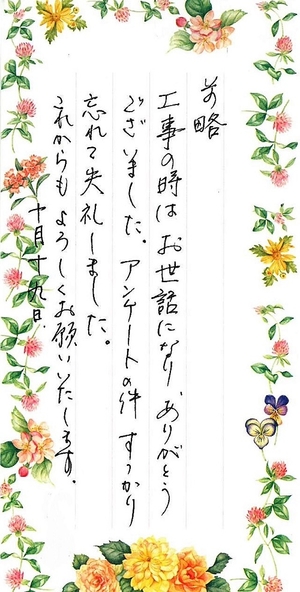 前略
工事の時はお世話になり、ありがとう
ございました。アンケートの件 すっかり
忘れて失礼しました。
これからもよろしくお願いいたします。
十月十九日